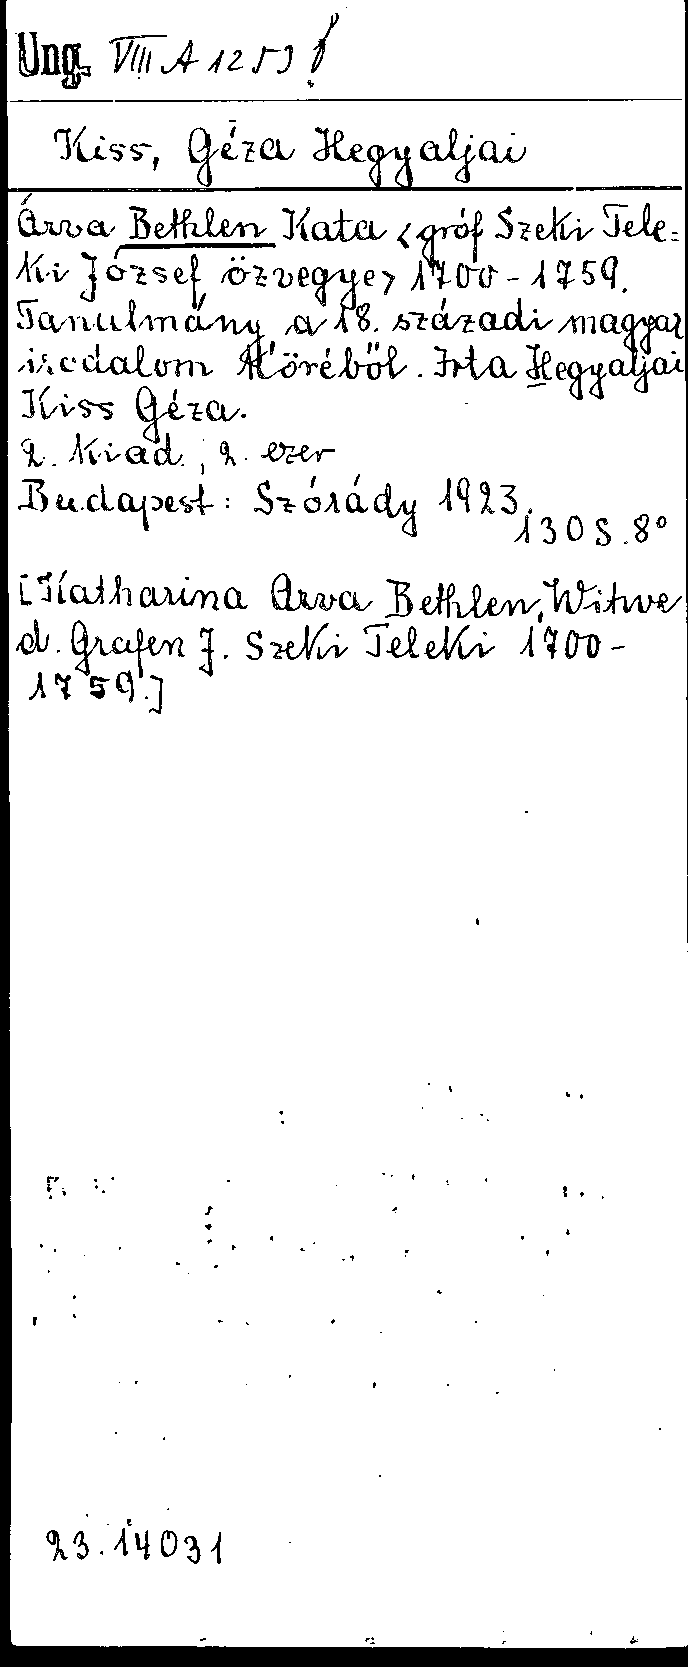 Ung. VIII A 1253
Kiss, Géza Hegyaljai
Árva Bethlen Kata <gróf Szeki Tele=
ki József özvegye> 1700-1759.
Tanulmány a 18. századi magyar
irodalom köréből. Irta Hegyaljai
Kiss Géza.
2. kiad., 2. ezer
Budapest: Szórády 1923.
130 S. 8°
[Katharina Arva Bethlen, Witwe
d. Grafen J. Szeki Teleki 1700-
1759.]
23.14031